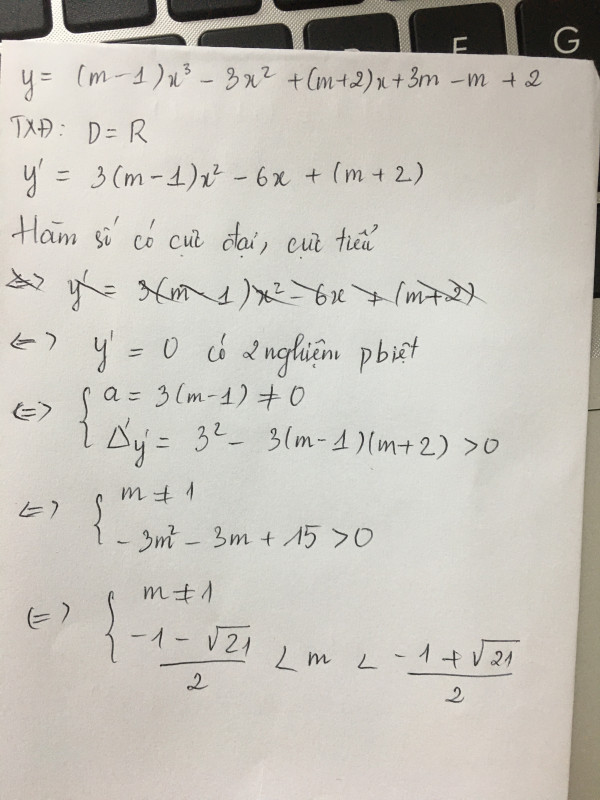 F G
y = (m-1)x³ - 3x² + (m+2)x + 3m - m + 2
TXĐ: D = R
y' = 3(m-1)x² - 6x + (m+2)
Hàm số có cực đại, cực tiểu
<=> y' = 3(m-1)x² - 6x + (m+2)
<=> y' = 0 có 2 nghiệm pbiệt
<=> { a = 3(m-1) ≠ 0
Δ'y' = 3² - 3(m-1)(m+2) > 0
<=> { m ≠ 1
-3m² - 3m + 15 > 0
<=> { m ≠ 1
(-1-√21)/2 < m < (-1+√21)/2